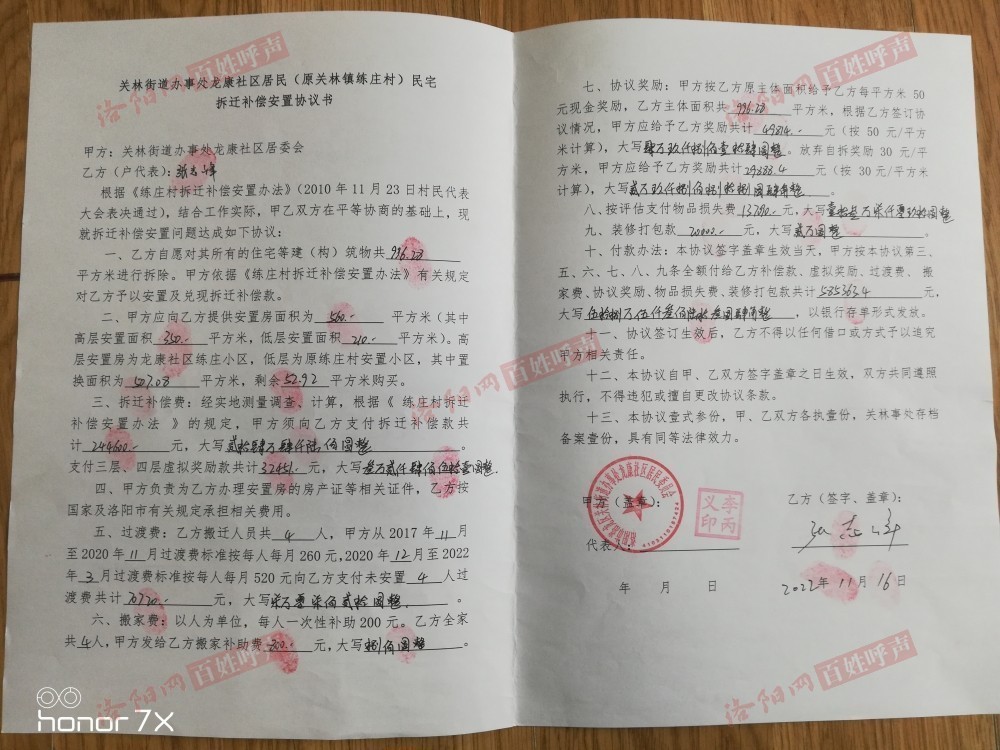 关林街道办事处龙康社区居民（原关林镇练庄村）民宅
拆迁补偿安置协议书
甲方：关林街道办事处龙康社区居委会
乙方（户代表）：张志
根据《练庄村拆迁补偿安置办法》（2010 年 11 月 23 日村民代表
大会表决通过），结合工作实际，甲乙双方在平等协商的基础上，现
就拆迁补偿安置问题达成如下协议：
一、乙方自愿对其所有的住宅等建（构）筑物共 996.28
平方米进行拆除。甲方依据《练庄村拆迁补偿安置办法》有关规定
对乙方予以安置及兑现拆迁补偿款。
二、甲方应向乙方提供安置房面积为 560.- 平方米（其中
高层安置面积 350.- 平方米，低层安置面积 210.- 平方米）。高
层安置房为龙康社区练庄小区，低层为原练庄村安置小区，其中置
换面积为 507.08 平方米，剩余 52.92 平方米购买。
三、拆迁补偿费：经实地测量调查、计算，根据《 练庄村拆迁
补偿安置办法 》的规定，甲方须向乙方支付拆迁补偿款共
计 244600.- 元，大写 贰拾肆万肆仟陆佰圆整 。
支付三层、四层虚拟奖励款共计 32451.- 元，大写 叁万贰仟肆佰伍拾壹圆整.
四、甲方负责为乙方办理安置房的房产证等相关证件，乙方按
国家及洛阳市有关规定承担相关费用。
五、过渡费：乙方搬迁人员共 4 人，甲方从 2017 年 11 月
至 2020 年 11 月过渡费标准按每人每月 260 元，2020 年 12 月至 2022
年 3 月过渡费标准按每人每月 520 元向乙方支付未安置 4 人过
渡费共计 70720.- 元，大写 柒万零柒佰贰拾圆整 。
六、搬家费：以人为单位，每人一次性补助 200 元。乙方全家
共 4 人，甲方发给乙方搬家补助费 800.- 元，大写 捌佰圆整 。
七、协议奖励：甲方按乙方原主体面积给予乙方每平方米 50
元现金奖励，乙方主体面积共 996.28 平方米，根据乙方签订协
议情况，甲方应给予乙方奖励共计 49814.- 元（按 50 元/平方
米计算），大写 肆万玖仟捌佰壹拾肆圆整 。放弃自拆奖励 30 元/平
方米，甲方应给予乙方奖励共计 29888.4 元（按 30 元/平方米
计算），大写 贰万玖仟捌佰捌拾捌圆肆角整 。
八、按评估支付物品损失费 137090.- 元，大写 壹拾叁万柒仟零玖拾圆整
九、装修打包款 20000.- 元，大写 贰万圆整 。
十、付款办法：本协议签字盖章生效当天，甲方按本协议第三、
五、六、七、八、九条全额付给乙方补偿款、虚拟奖励、过渡费、 搬
家费、协议奖励、物品损失费、装修打包款共计 585363.4 元，
大写 伍拾捌万伍仟叁佰陆拾叁圆肆角整 ，以银行存单形式发放。
十一、 协议签订生效后，乙方不得以任何借口或方式予以追究
甲方相关责任。
十二、本协议自甲、乙双方签字盖章之日生效，双方共同遵照
执行，不得违犯或擅自更改协议条款。
十三、本协议壹式叁份，甲、乙双方各执壹份，关林事处存档
备案壹份，具有同等法律效力。
甲方（盖章）：
乙方（签字、盖章）：
李丙
义印
代表人：
年 月 日
2022 年 11 月 16 日
洛阳网 百姓呼声
洛阳网 百姓呼声
洛阳网 百姓呼声
洛阳网 百姓呼声
洛阳网 百姓呼声
honor 7X